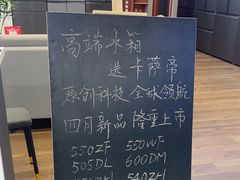 高端冰箱
选卡萨帝
原创科技 全球领航
四月新品 隆重上市
550ZF 550WF
505DL 600DM